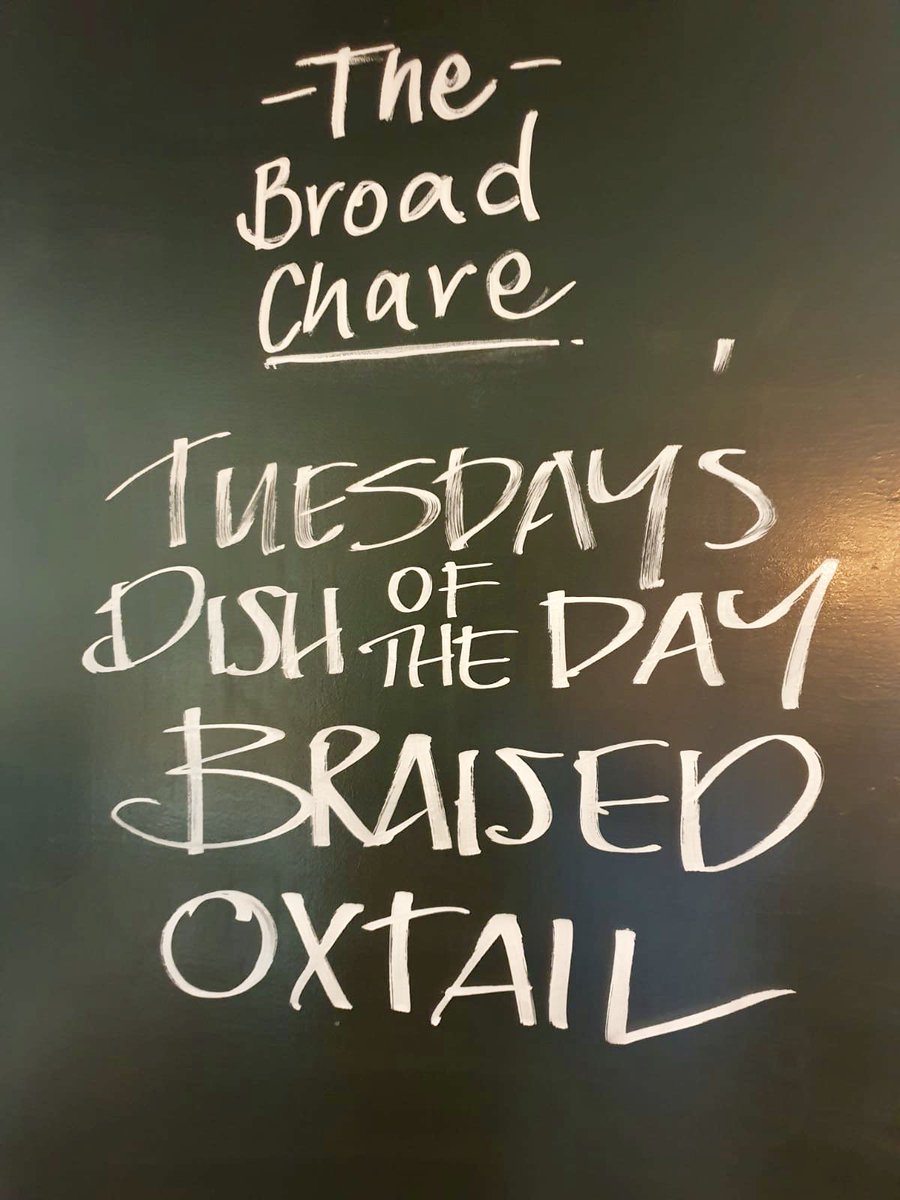 -The-
Broad
Chare
TUESDAY'S
DISH OF THE DAY
BRAISED
OXTAIL